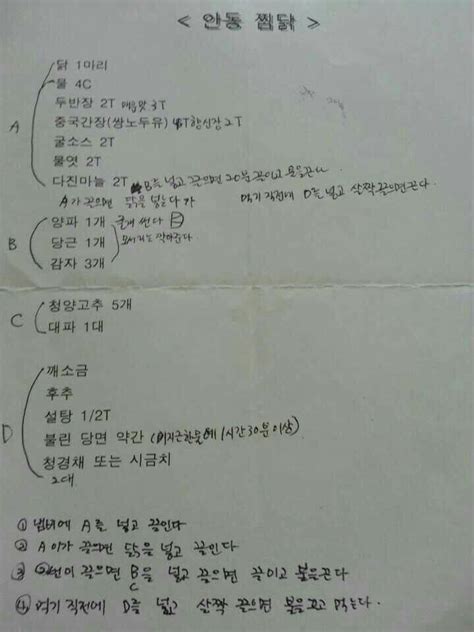 < 안동 찜닭 >
닭 1마리
물 4C
두반장 2T 매운맛 3T
중국간장(쌍노두유) 향신장 2T
굴소스 2T
A
물엿 2T
다진마늘 2T B를 넣고 끓으면 20분 끓이고 불을끈다.
A가 끓으면 닭을 넣는다 가 먹기 직전에 D를 넣고 살짝 끓으면끈다.
양파 1개 크게 썬다
B 당근 1개 모서리는 깎아준다
감자 3개
C 청양고추 5개
대파 1대
깨소금
후추
설탕 1/2T
D 불린 당면 약간 (미지근한물에 1시간30분이상)
청경채 또는 시금치
2대
① 냄비에 A를 넣고 끓인다
② A이가 끓으면 닭을 넣고 끓인다
③ ②번이 끓으면 B를 넣고 끓으면 끓이고 불을끈다
C
④ 먹기 직전에 D를 넣고 살짝 끓으면 불을끄고 먹는다.